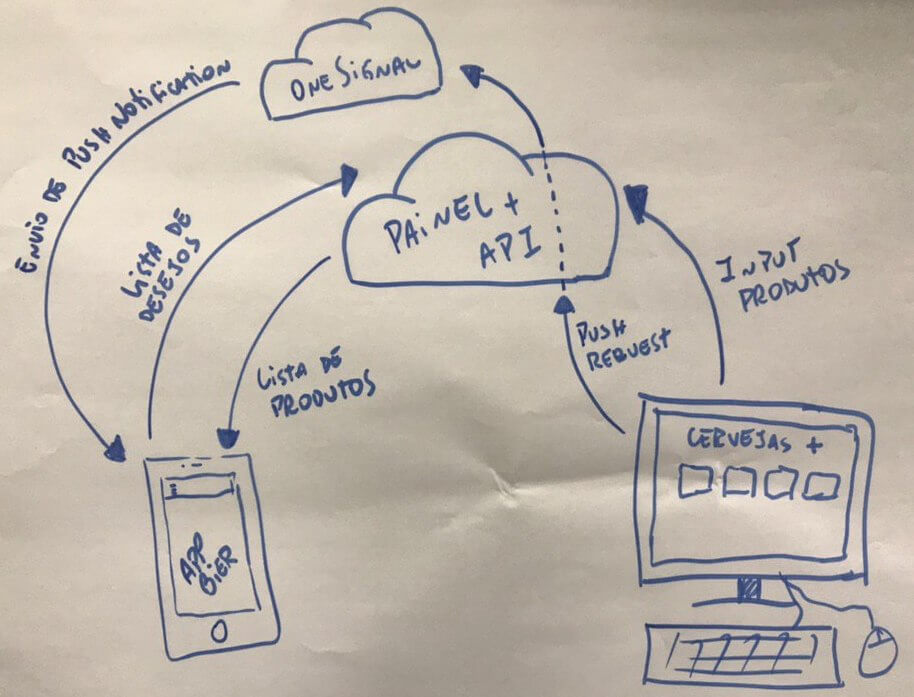 ONESIGNAL
ENVIO DE PUSH NOTIFICATION
PAINEL +
API
LISTA DE
DESEJOS
INPUT
PRODUTOS
PUSH
REQUEST
LISTA DE
PRODUTOS
CERVEJAS +
APP
BIER